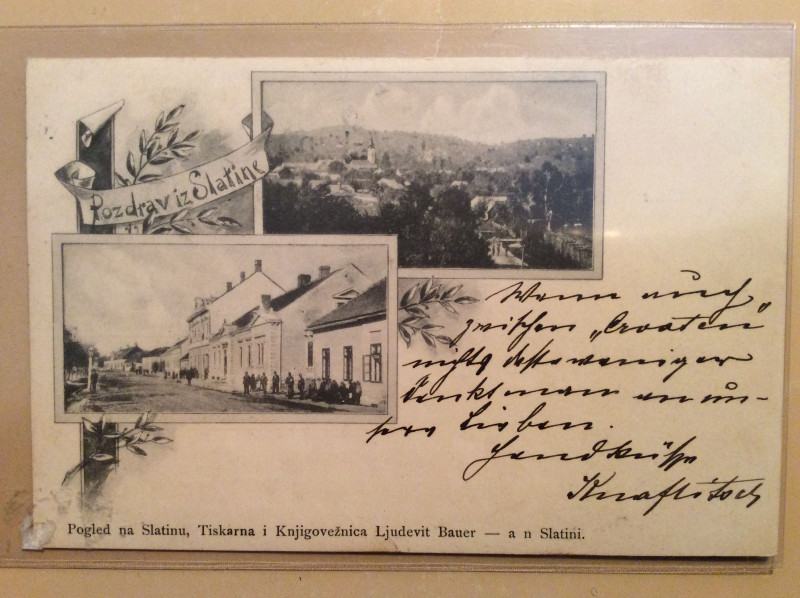 Pozdrav iz Slatine
Wenn auch
zwischen „Croaten"
nichts destoweniger
denkt man an un-
sere Lieben.
Handküsse
Knaflitsch
Pogled na Slatinu, Tiskarna i Knjigovežnica Ljudevit Bauer — a n Slatini.